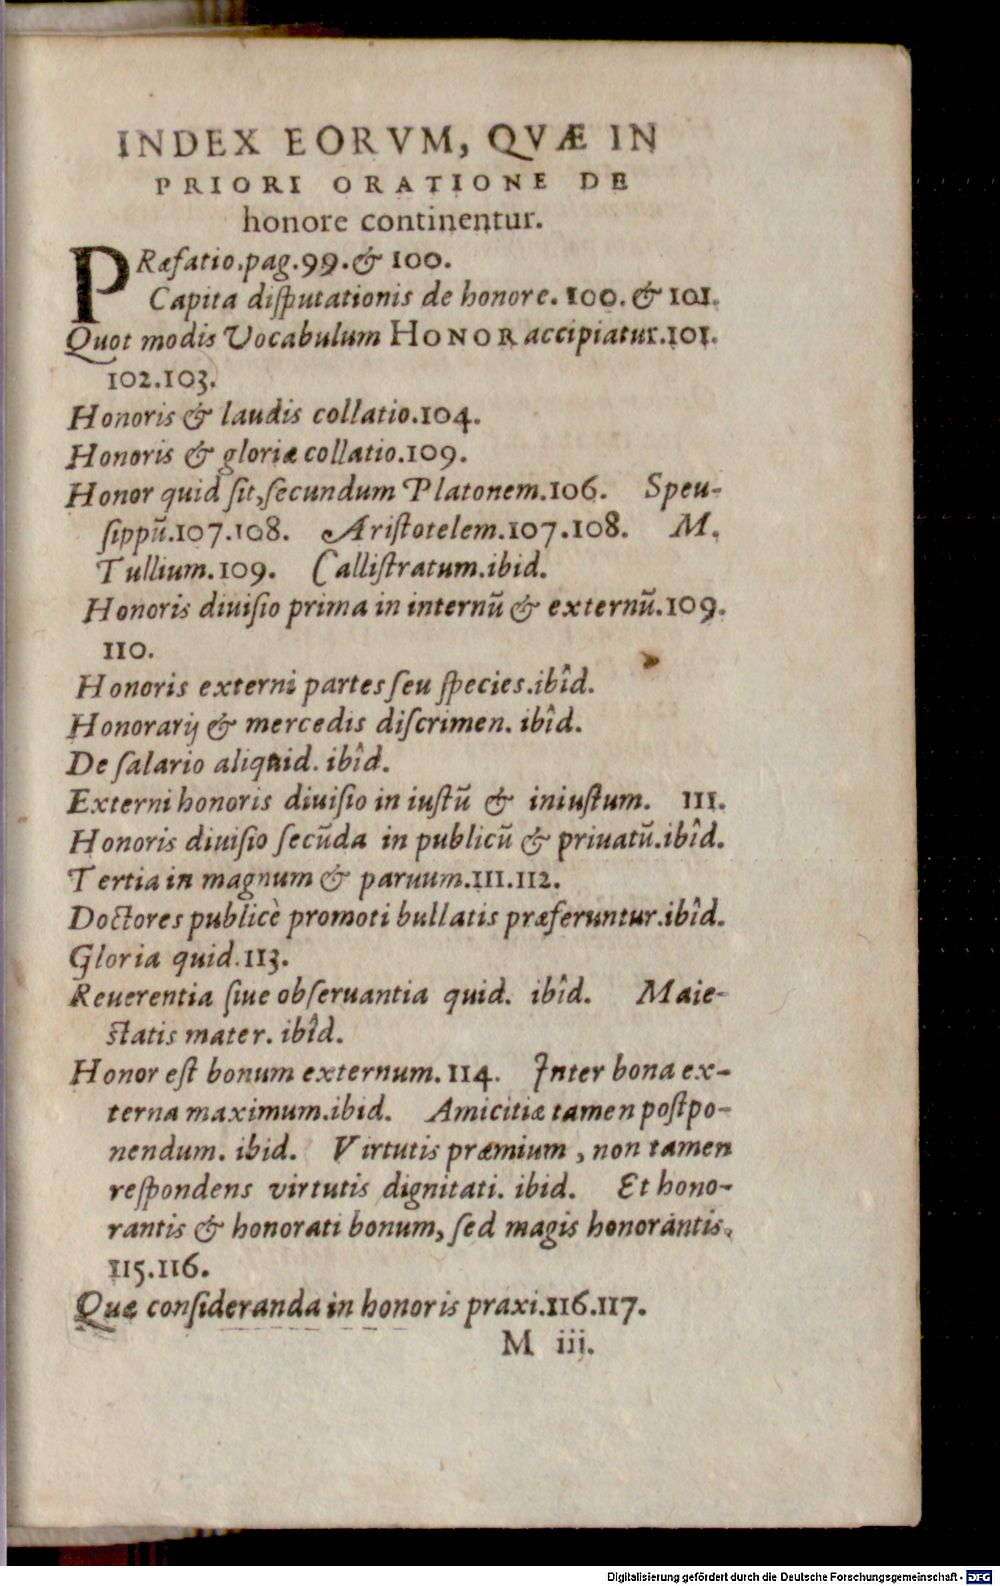 INDEX EORVM, QVÆ IN
PRIORI ORATIONE DE
honore continentur.
PRæfatio.pag.99.& 100.
Capita diſputationis de honore. 100. & 101.
Quot modis Vocabulum HONOR accipiatur.101.
102.103.
Honoris & laudis collatio.104.
Honoris & gloriæ collatio.109.
Honor quid ſit,ſecundum Platonem.106. Speu-
ſippū.107.108. Ariſtotelem.107.108. M.
Tullium.109. Calliſtratum.ibid.
Honoris diuiſio prima in internū & externū.109.
110.
Honoris externi partes ſeu ſpecies.ibîd.
Honorarij & mercedis diſcrimen. ibîd.
De ſalario aliquid. ibîd.
Externi honoris diuiſio in iuſtū & iniuſtum. 111.
Honoris diuiſio ſecūda in publicū & priuatū.ibîd.
Tertia in magnum & paruum.111.112.
Doctores publicè promoti bullatis præferuntur.ibîd.
Gloria quid.113.
Reuerentia ſiue obſeruantia quid. ibîd. Maie-
ſtatis mater. ibîd.
Honor eſt bonum externum.114. Inter bona ex-
terna maximum.ibid. Amicitiæ tamen poſtpo-
nendum. ibid. Virtutis præmium , non tamen
reſpondens virtutis dignitati. ibid. Et hono-
rantis & honorati bonum, ſed magis honorantis.
115.116.
Quæ conſideranda in honoris praxi.116.117.
M iii.
Digitalisierung gefördert durch die Deutsche Forschungsgemeinschaft - DFG